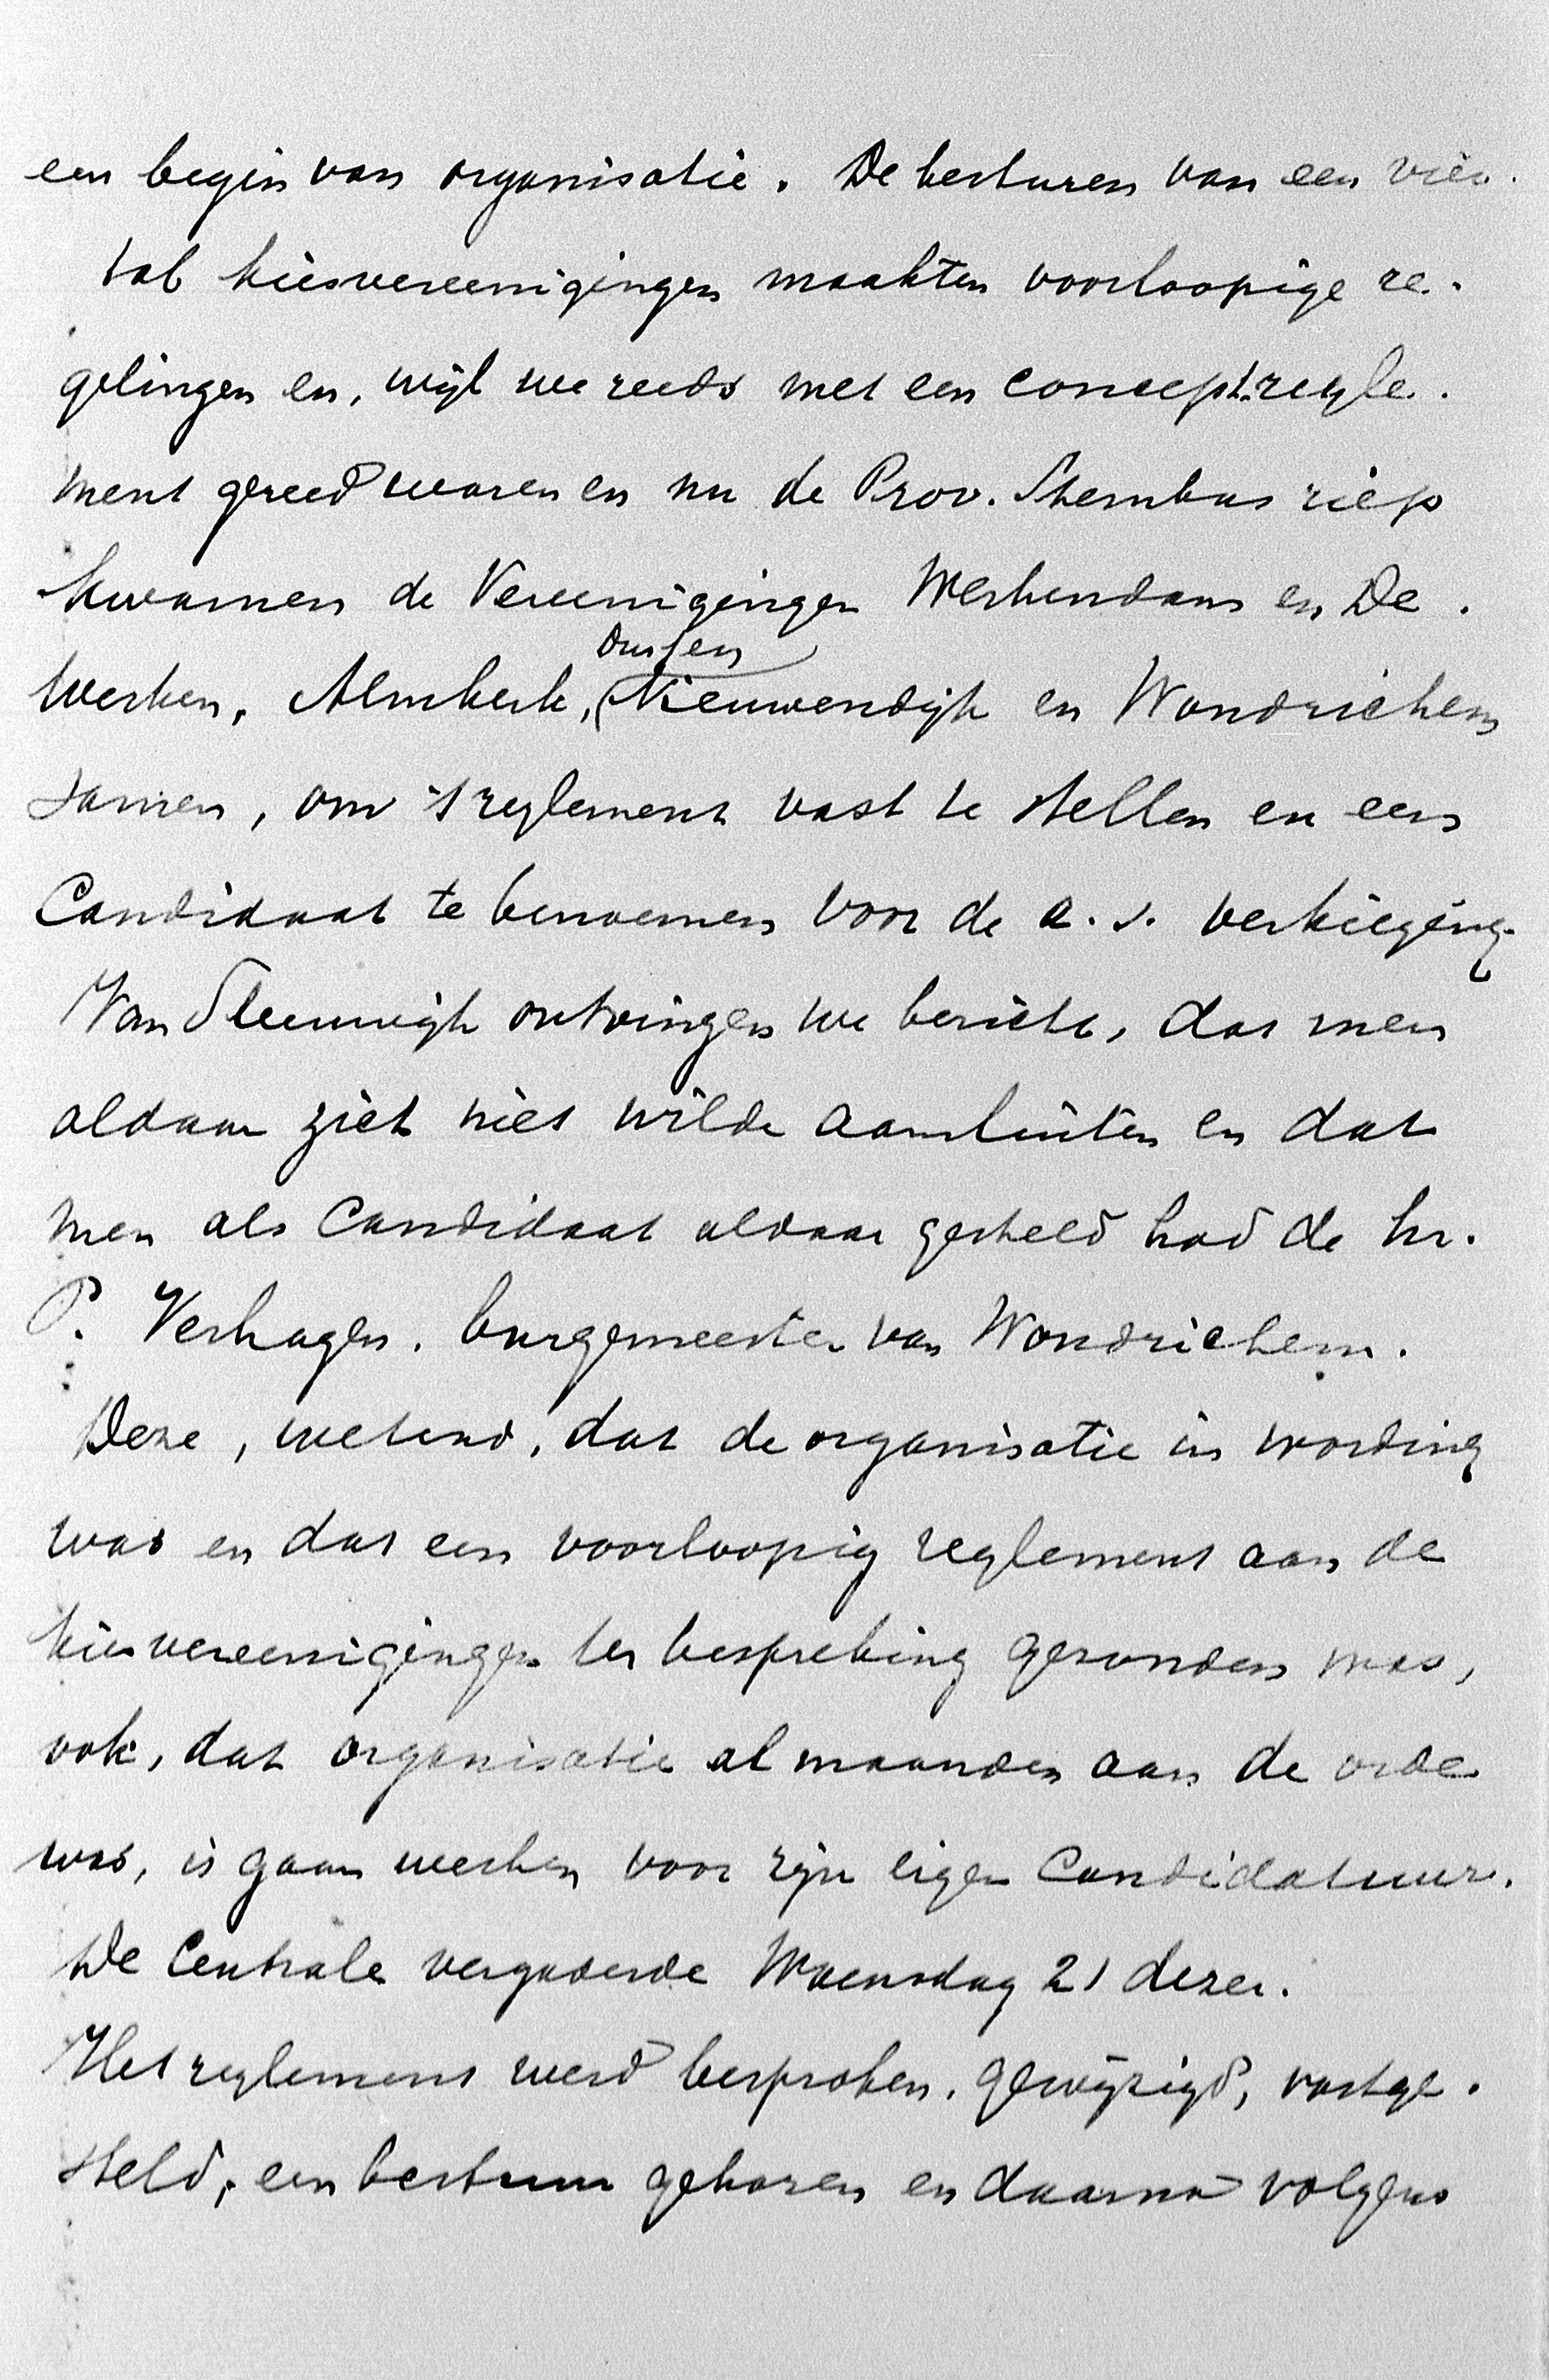 een begin van organisatie. De besturen van een vier-
tal kiesvereenigingen maakten voorloopige re-
gelingen en, wijl we reeds met een conceptregle-
ment gereed waren en nu de Prov. Stembus riep
kwamen de Vereenigingen Werkendam en De
Dussen
Werken, Almkerk, Nieuwendijk en Woudrichem
samen, om 't reglement vast te stellen en een
Candidaat te benoemen voor de a.s. verkiezing.
Van Sleeuwijk ontvingen we bericht, dat men
aldaar zich niet wilde aansluiten en dat
men als Candidaat aldaar gesteld had de hr.
P. Verhagen, burgemeester van Woudrichem.
Deze, wetend, dat de organisatie in wording
was en dat een voorloopig reglement aan de
kiesvereenigingen ter bespreking gezonden was,
ook, dat organisatie al maanden aan de orde
was, is gaan werken voor zijn eigen Candidatuur.
De Centrale vergaderde Woensdag 21 dezer.
Het reglement werd besproken, gewijzigd, vastge-
steld, een bestuur gekozen en daarna volgens